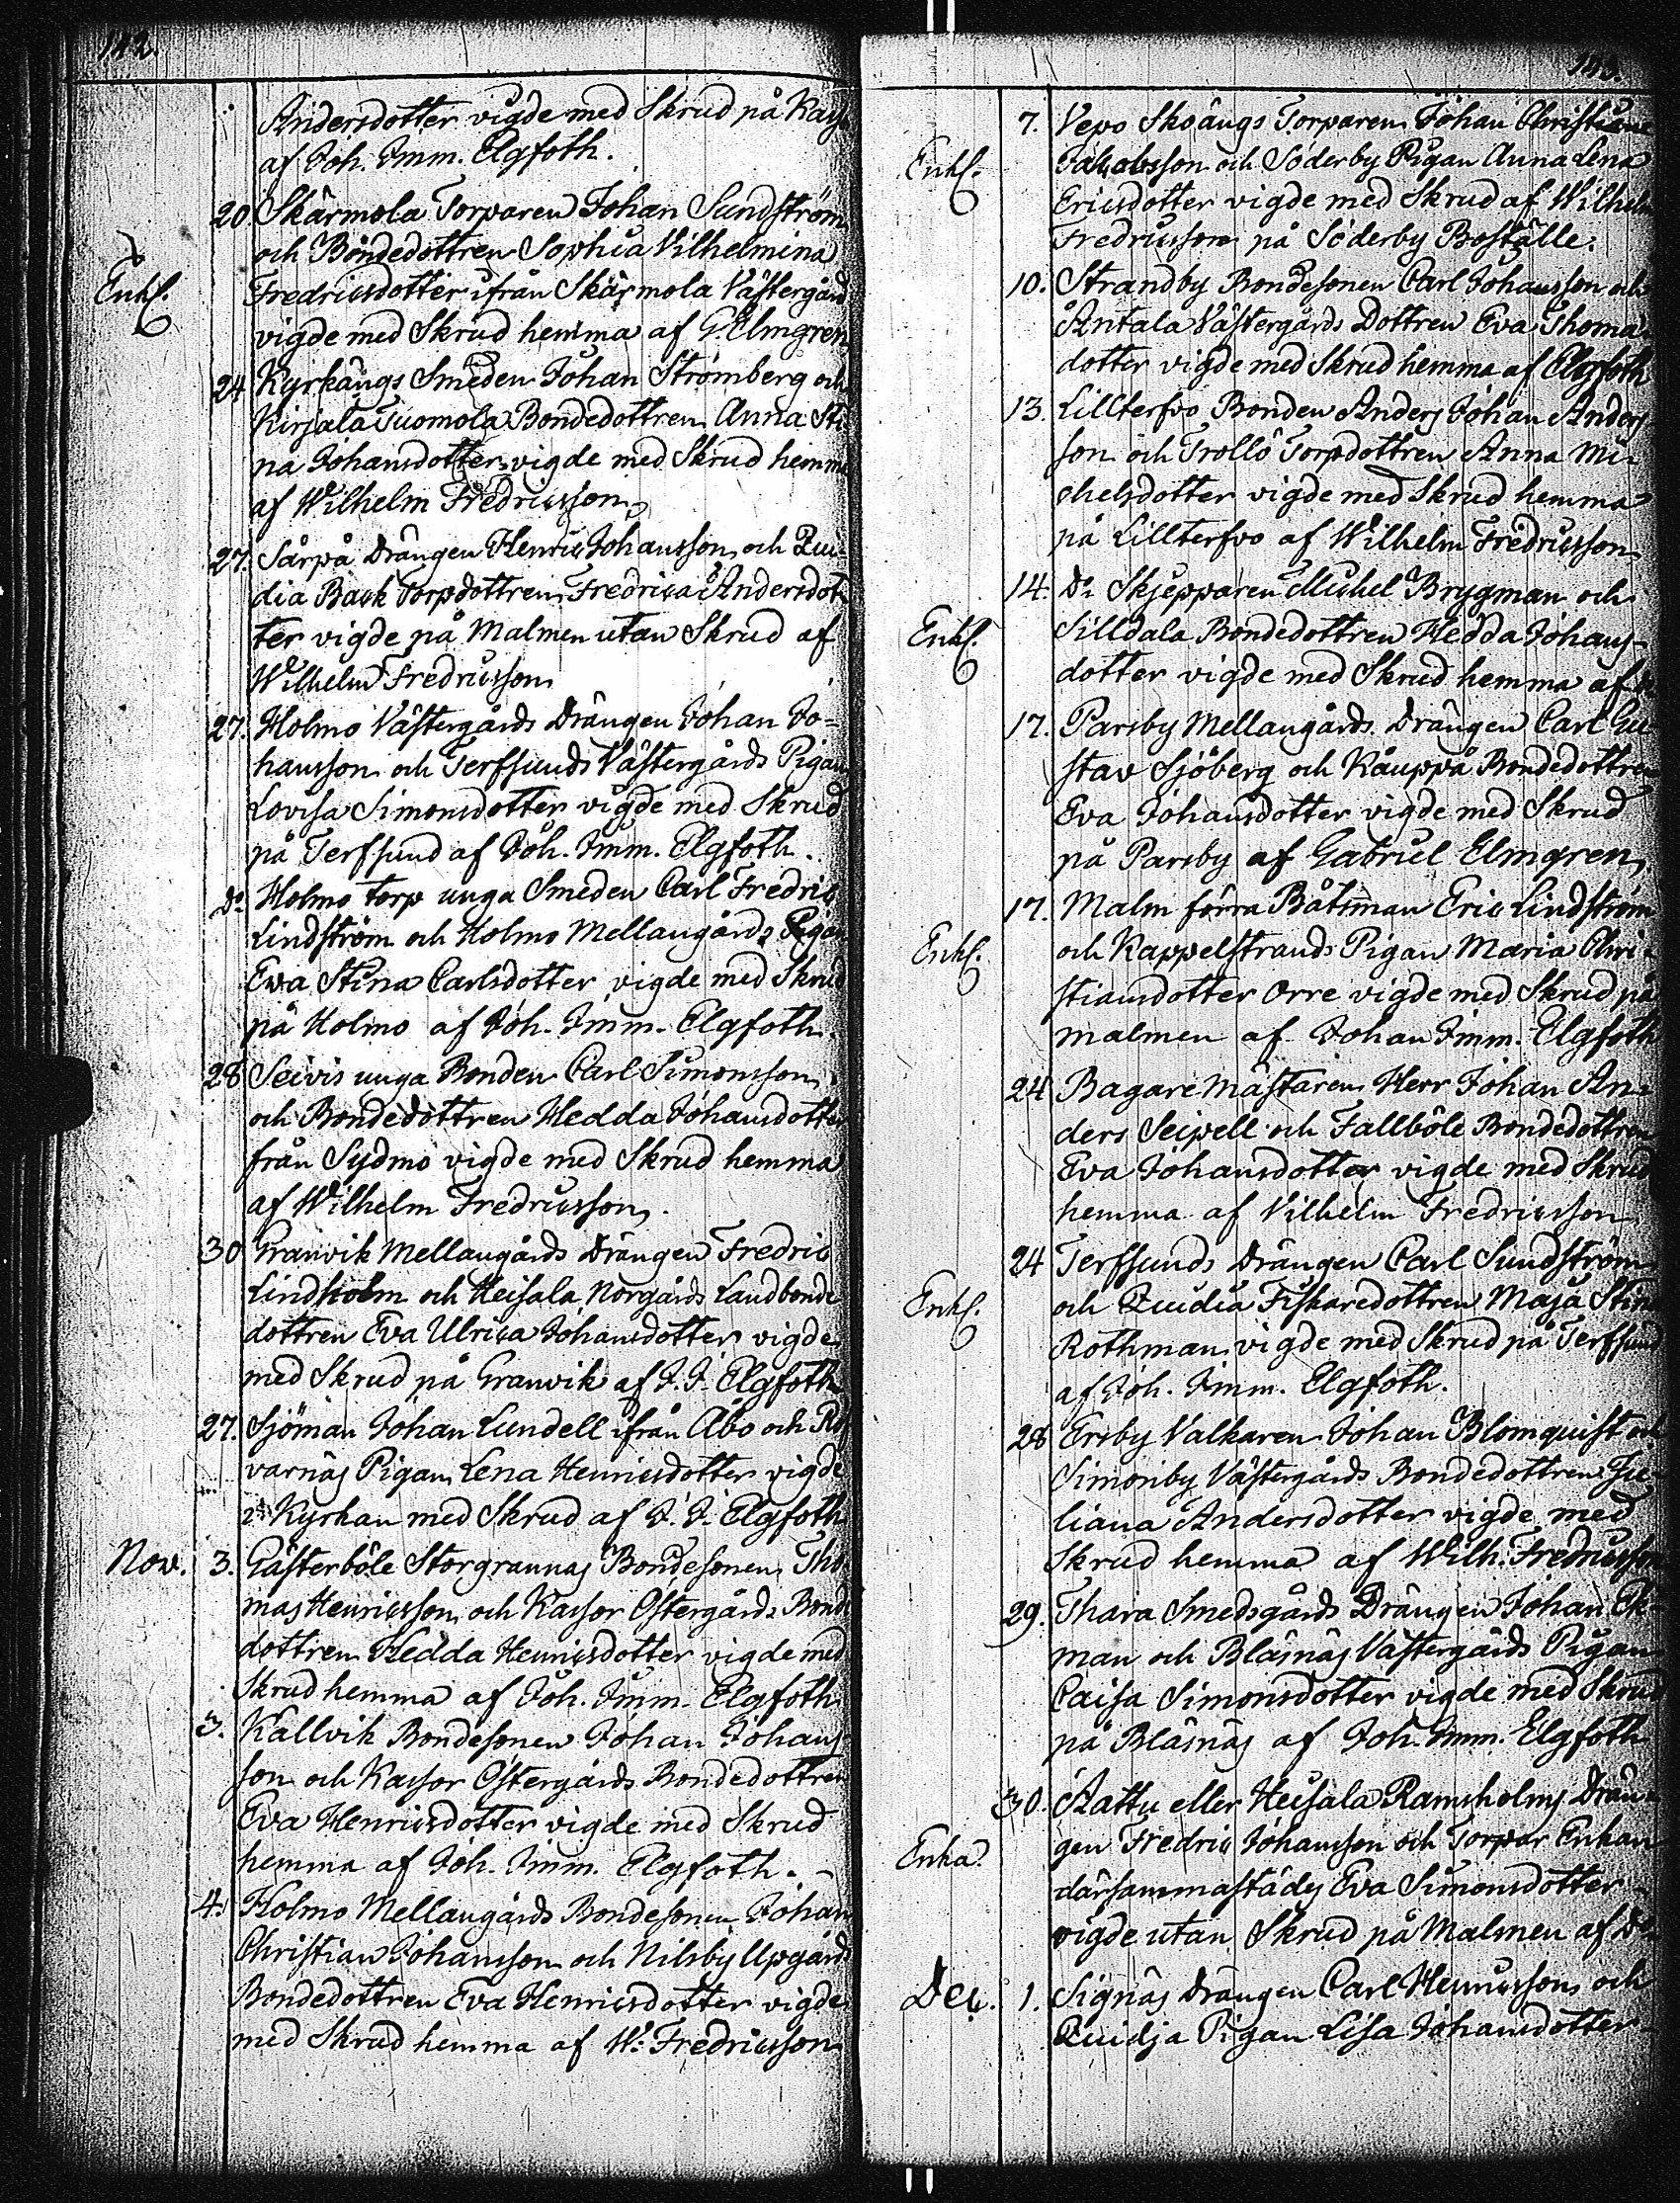 142.
Andersdotter vigde med Skrud på
af Joh. Imm. Elgfoth.
20. Skärmola Torparen Johan Sundström
och Bondedottren Sophia Vilhelmina
Enkl. Fredricsdotter ifrån Skärmola Västergård
vigde med Skrud hemma af G. Elmgren
24 Kyrkängs Smeden Johan Strömberg och
Kirjala Tuomola Bondedottren Anna Sti
na Johansdotter vigde med Skrud hemma
af Wilhelm Fredricsson
27. Sårpå Drängen Henric Johansson och Qui-
dia Back Torpdottren Fredrica Andersdot-
ter vigde på Malmen utan Skrud af
Wilhelm Fredricsson
27. Holmo Västergårds Drängen Johan Jo-
hansson och Terfsunds Västergårds Pigan
Lovisa Simonsdotter vigde med Skrud
på Terfsund af Joh. Imm. Elgfoth.
Do Holmo torp unga Smeden Carl Fredric
Lindström och Holmo Mellangårds Pigan
Ewa Stina Carlsdotter vigde med Skrud
på Holmo af Joh. Imm. Elgfoth.
28 Seivis unga Bonden Carl Simonsson
och Bondedottren Hedda Johansdotter
från Sydmo vigde med Skrud hemma
af Wilhelm Fredricsson.
30 Granvik Mellangårds Drängen Fredric
Lindholm och Heisala Norgårds Landbonde
dottren Eva Ulrica Johansdotter vigde
med Skrud på Granvik af J. J. Elgfoth
27. Sjöman Johan Lundell ifrån Åbo och
varnäs Pigan Lena Henricsdotter vigde
i Kyrkan med Skrud af J. J. Elgfoth
Nov. 3. Gästerböle Storgrannas Bondesonen Tho
mas Henricsson och Kassor Östergårds Bonde
dottren Hedda Henricsdotter vigde med
Skrud hemma af Joh. Imm. Elgfoth
3. Kallvik Bondesonen Johan Johans
son och Kassor Östergårds Bondedottren
Eva Henricsdotter vigde med Skrud
hemma af Joh. Imm. Elgfoth.
4. Holmo Mellangårds Bondesonen Johan
Christian Johansson och Nilsby Upgårds
Bondedottren Eva Henricsdotter vigde
med Skrud hemma af W. Fredricsson
143.
7. Vepo Skoängs Torparen Johan Christian
Enkl. Jakobsson och Söderby Pigan Anna Lena
Ericsdotter vigde med Skrud af Wilhelm
Fredricsson på Söderby Boställe.
10. Strandby Bondesonen Carl Johansson och
Antala Västergårds Dottren Eva Thomas
dotter vigde med Skrud hemma af Elgfoth
13. Lillterfvo Bonden Anders Johan Anders
son och Trollö Torpdottren Anna Mi-
chelsdotter vigde med Skrud hemma
på Lillterfvo af Wilhelm Fredricsson
14. Do Skjepparen Michel Brygman och
Enkl. Silldala Bondedottren Hedda Johans-
dotter vigde med Skrud hemma af
17. Parsby Mellangårds Drängen Carl Gu
stav Sjöberg och Kåuppå Bondedottren
Eva Johansdotter vigde med Skrud
på Parsby af Gabriel Elmgren,
17. Malm förra Båtsman Eric Lindström
Enkl. och Kappelstrands Pigan Maria Chri-
stiansdotter Orre vigde med Skrud på
malmen af Johan Imm. Elgfoth
24 Bagare Mästaren Herr Johan An-
ders Seipell och Fallböle Bondedottren
Eva Johansdotter vigde med Skrud
hemma af Vilhelm Fredricsson
24 Terfsunds Drängen Carl Sundström
Enkl. och Quidia Fiskaredottren Maja Stina
Rothman vigde med Skrud på Terfsund
af Joh. Imm. Elgfoth.
28 Ersby Valkaren Johan Blomquist och
Simonby Västergårds Bondedottren Ju-
liana Andersdotter vigde med
Skrud hemma af Wilh. Fredricsson
29. Thara Smedsgårds Drängen Johan Ek-
man och Bläsnäs Västergårds Pigan
Caisa Simonsdotter vigde med Skrud
på Bläsnäs af Joh. Imm. Elgfoth
30. Aattu eller Heisala Ramsholms Drän-
Enka. gen Fredric Johansson och Torpar Enkan
därsammastädes Eva Simonsdotter
vigde utan Skrud på Malmen af Do
Dec. 1. Signäs Drängen Carl Henricsson och
Quidja Pigan Lisa Johansdotter